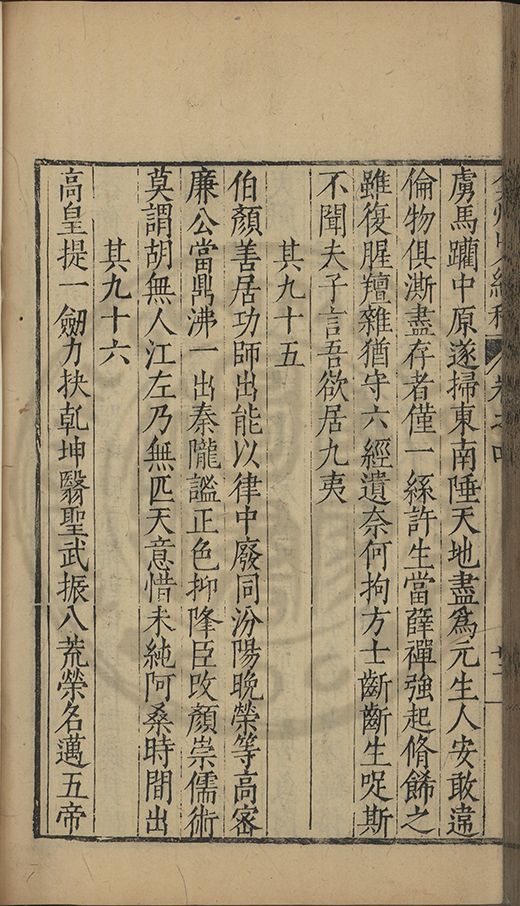 虜馬躪中原遂掃東南陲天地盡爲元生人安敢違
倫物俱澌盡存者僅一絲許生當薛禪強起脩餙之
雖復腥羶雜猶守六經遺奈何拘方士齗齗生哫斯
不聞夫子言吾欲居九夷
其九十五
伯顏善居功師出能以律中廢同汾陽晚榮等高密
廉公當鼎沸一出秦隴謐正色抑降臣改顏崇儒術
莫謂胡無人江左乃無匹天意惜未純阿桑時間出
其九十六
高皇提一劒力抉乾坤翳聖武振八荒榮名邁五帝